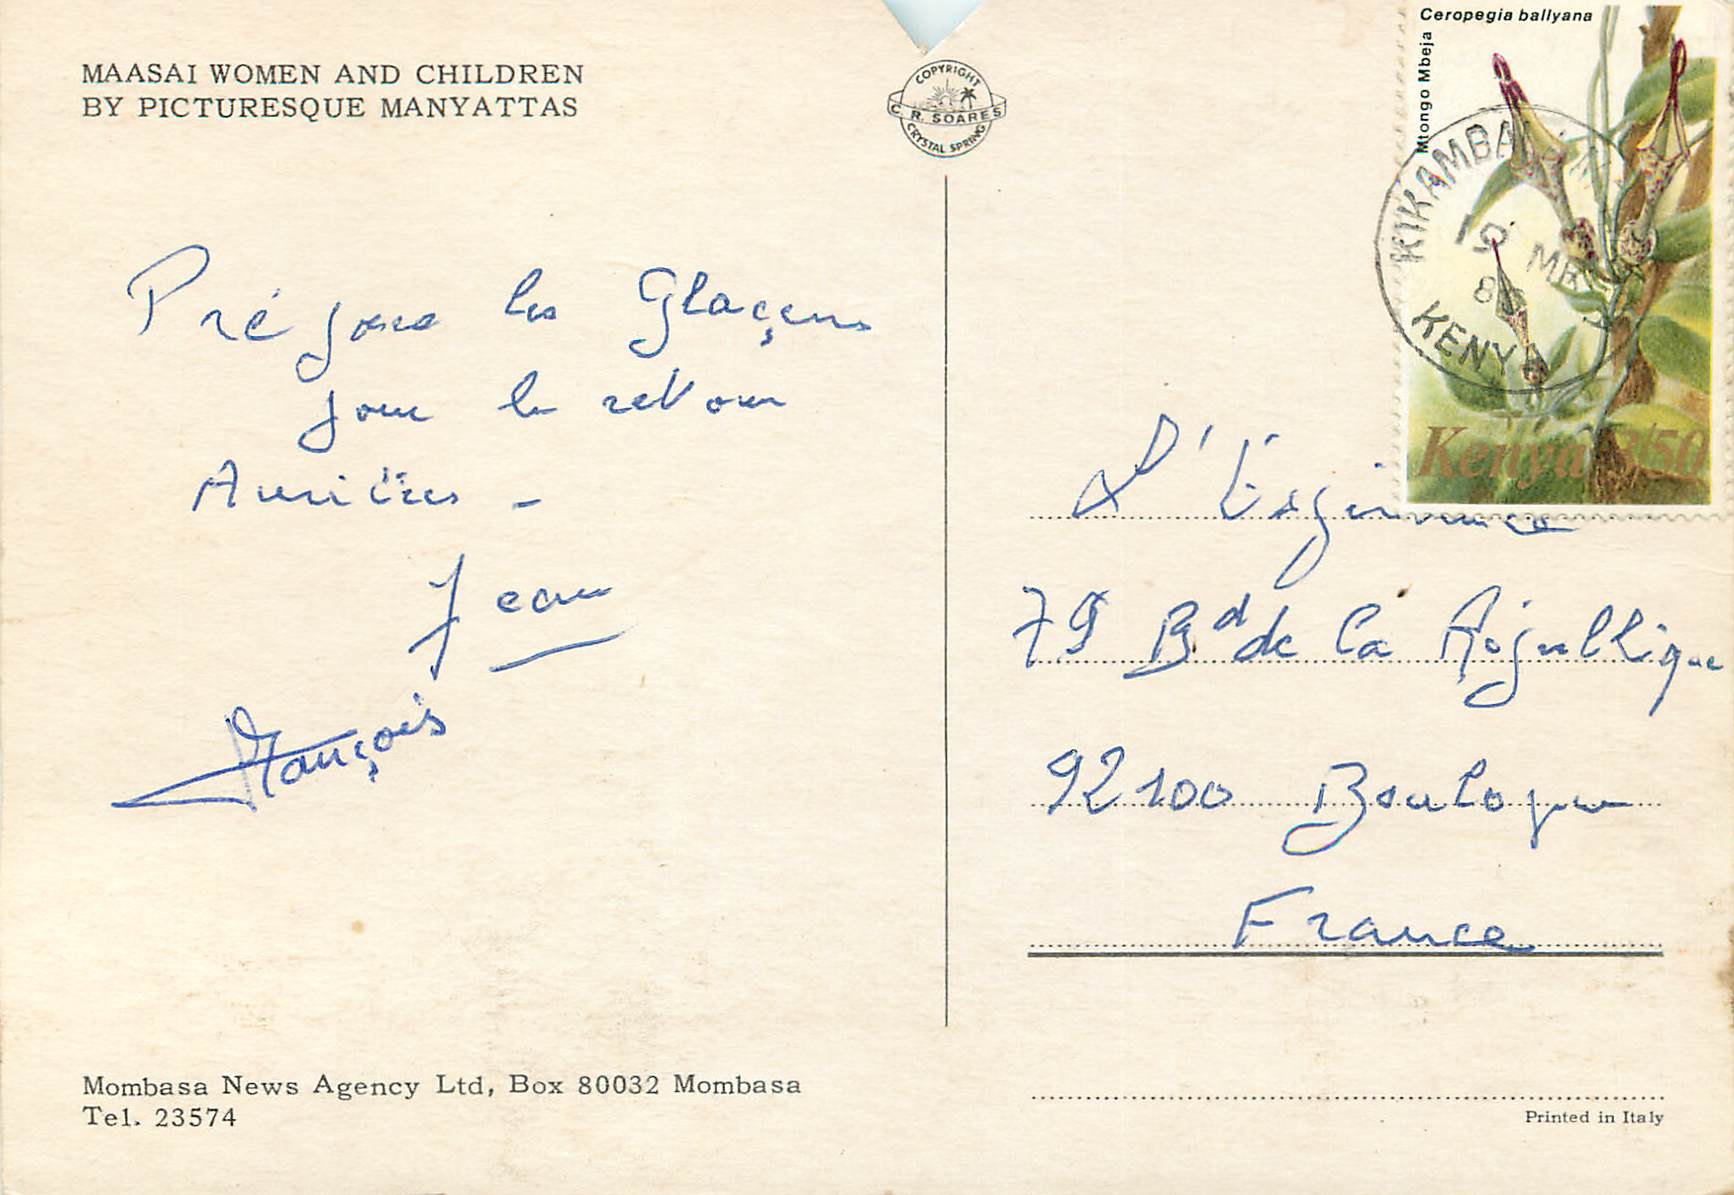 MAASAI WOMEN AND CHILDREN
BY PICTURESQUE MANYATTAS
COPYRIGHT
C. R. SOARES
CRYSTAL SPRING
Ceropegia ballyana
Mtongo Mbeja
KIKAMBALA
19 MR
KENYA
Kenya 3/50
Prépare les Glaçons
pour le retour
Amitiés -
Jean
François
79 Bd de la République
92100 Boulogne
France
Mombasa News Agency Ltd, Box 80032 Mombasa
Tel. 23574
Printed in Italy